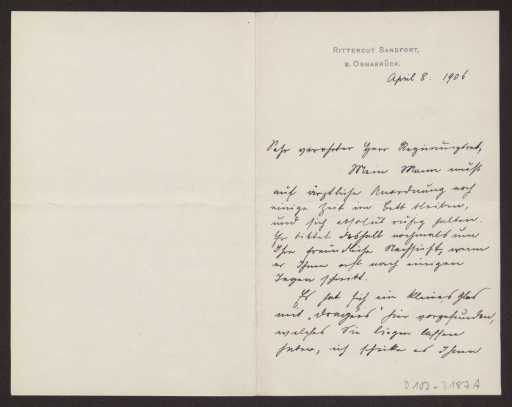 Rittergut Sandfort,
b. Osnabrück.
April 8. 1906
Sehr verehrter Herr Regierungsrat,
Mein Mann muß
auf ärztliche Anordnung noch
einige Zeit im Bett bleiben,
und sich absolut ruhig halten.
Er bittet deshalb nochmals um
Ihre freundliche Nachsicht, wenn
er Ihnen erst nach einigen
Tagen schreibt.
Es hat sich ein kleines Glas
mit „Dragées" hier vorgefunden,
welches Sie liegen lassen
haben, ich schicke es Ihnen
D 102-3187A